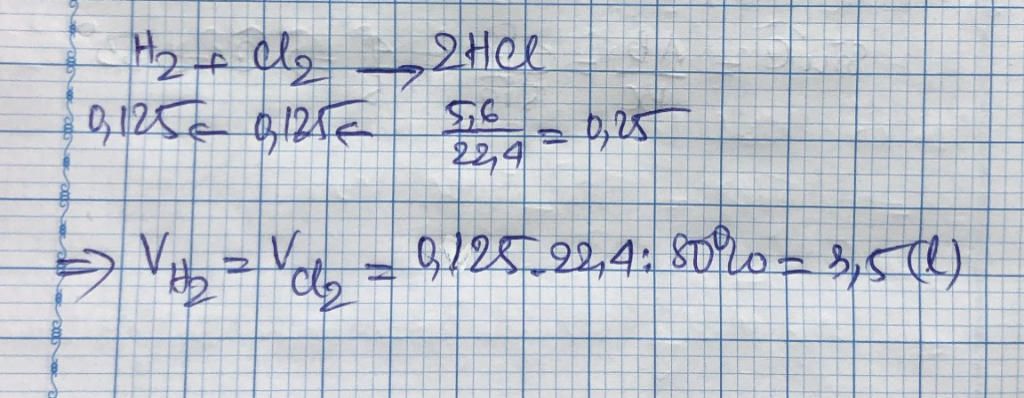 H₂ + Cl₂ → 2HCl
0,125 ← 0,125 ← 5,6/22,4 = 0,25
⇒ V_H₂ = V_Cl₂ = 0,125.22,4:80% = 3,5(l)